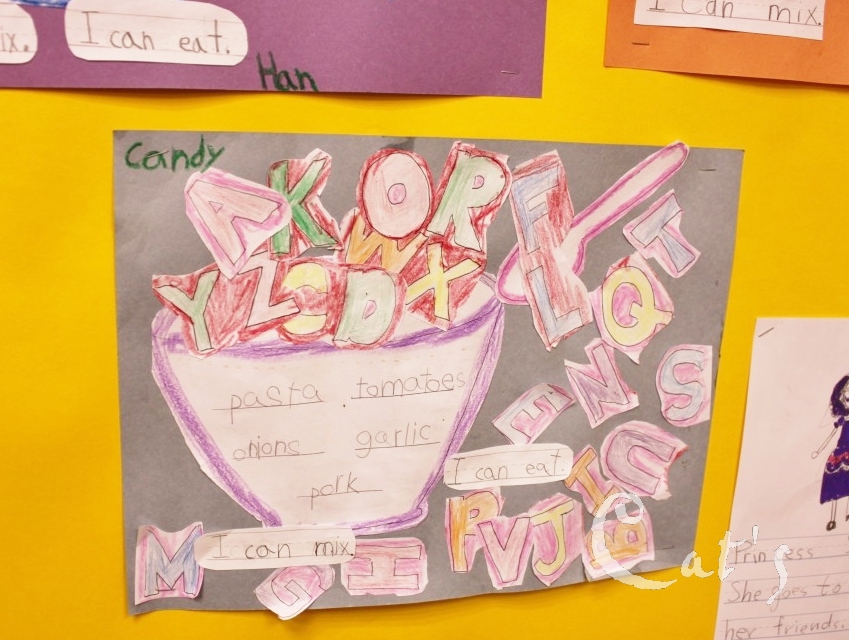 ix.
I can eat.
I can mix.
Han
Candy
A K O R F T
W
Y Z C D X L Q
pasta tomatoes
onions garlic
pork
E N S
I can eat.
I U
P V J B
M I can mix.
G H
Cat's
Princess
She goes to
her friends.